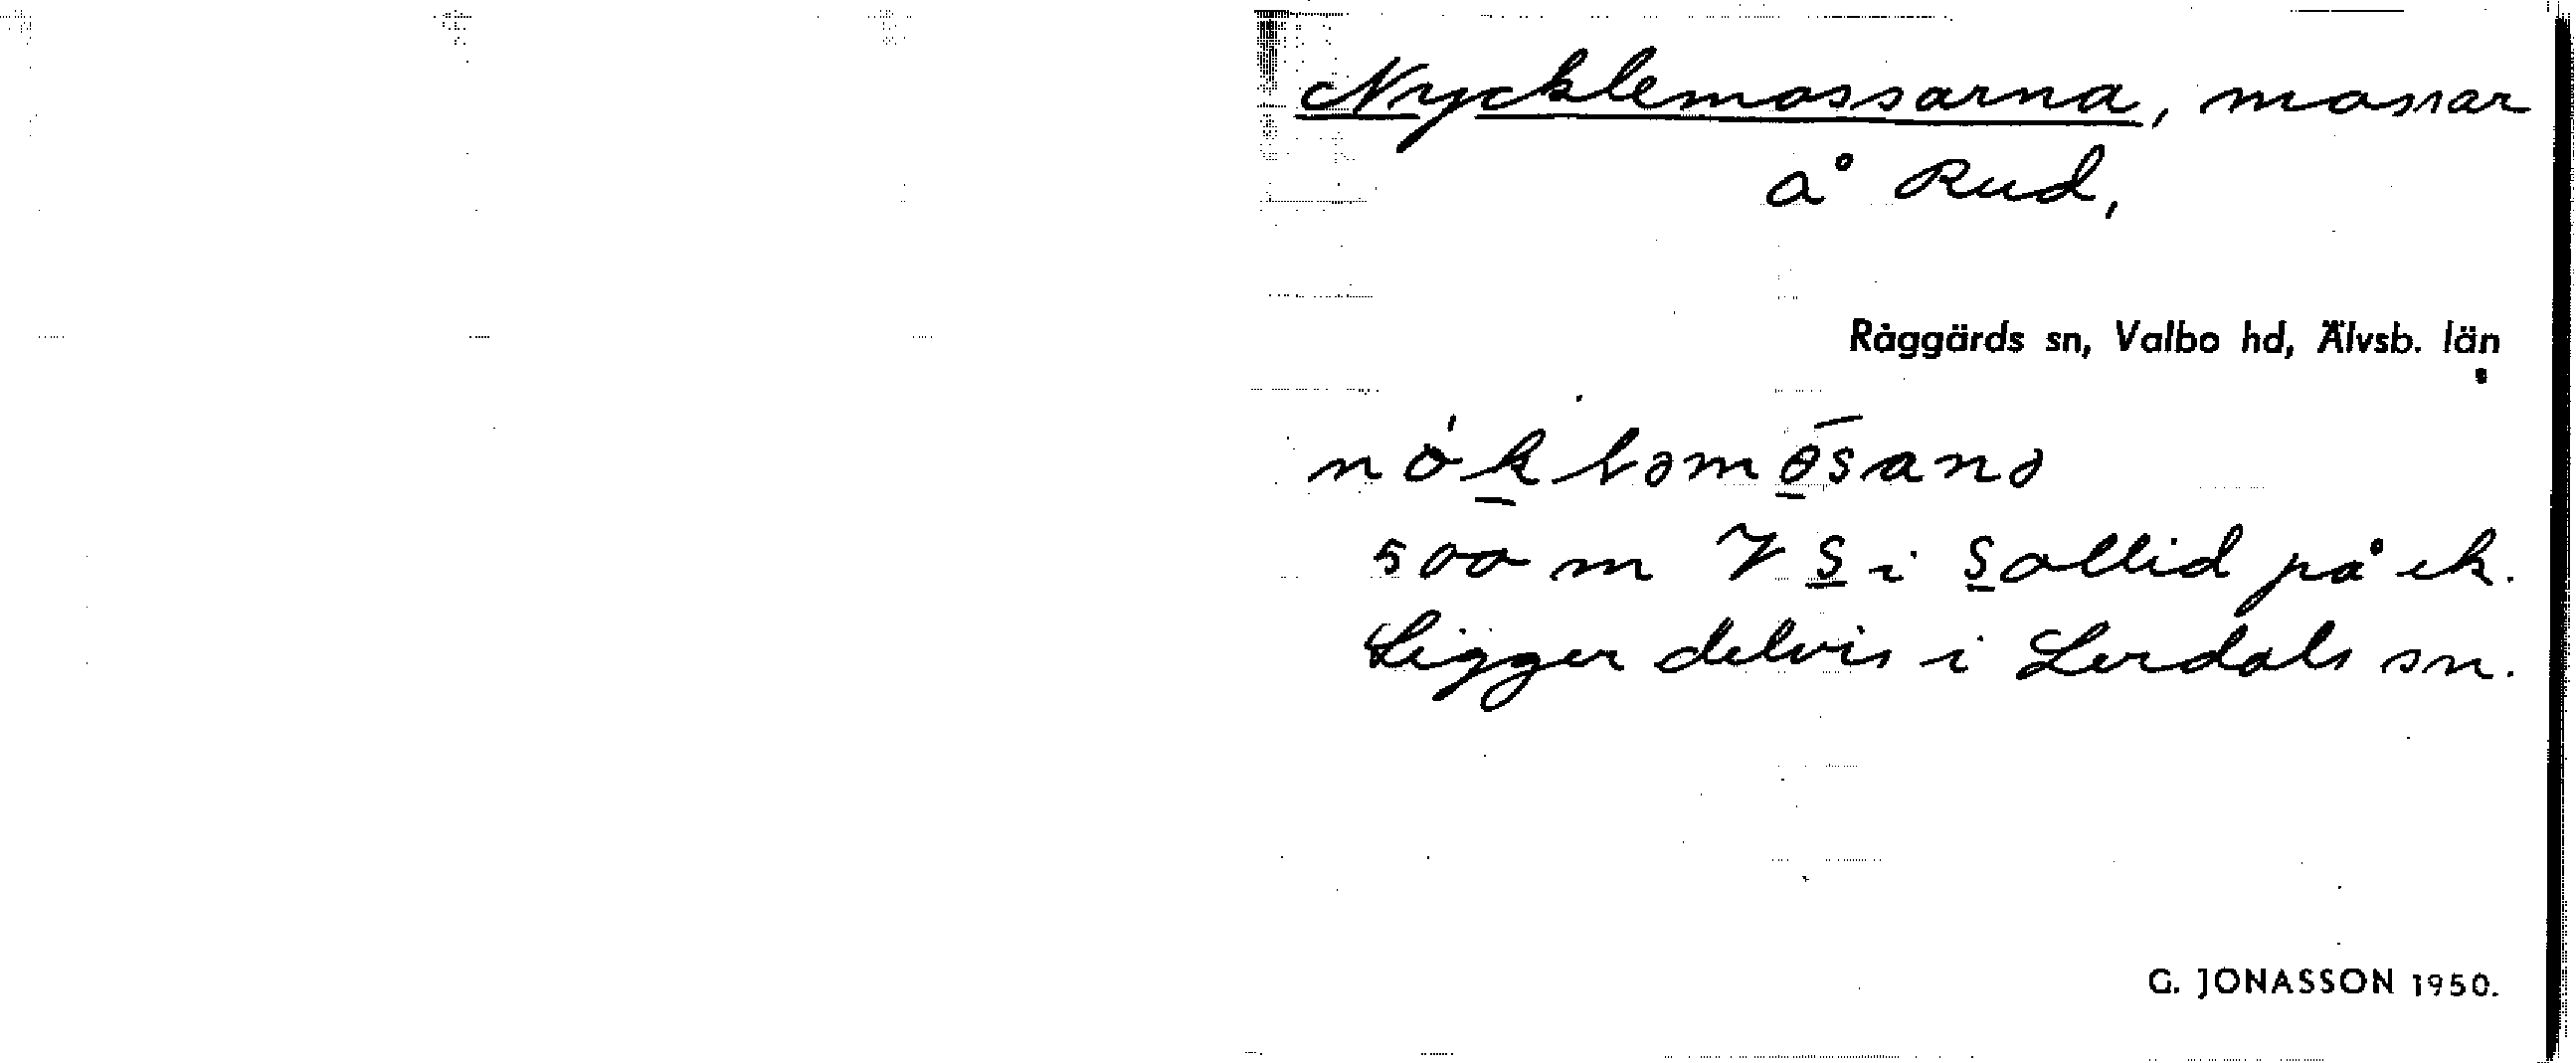 Nycklemossarna, mossar
å Rud,
Råggärds sn, Valbo hd, Älvsb. län
500 m V S i Sollid på ek.
Ligger delvis i Lerdals sn.
G. JONASSON 1950.